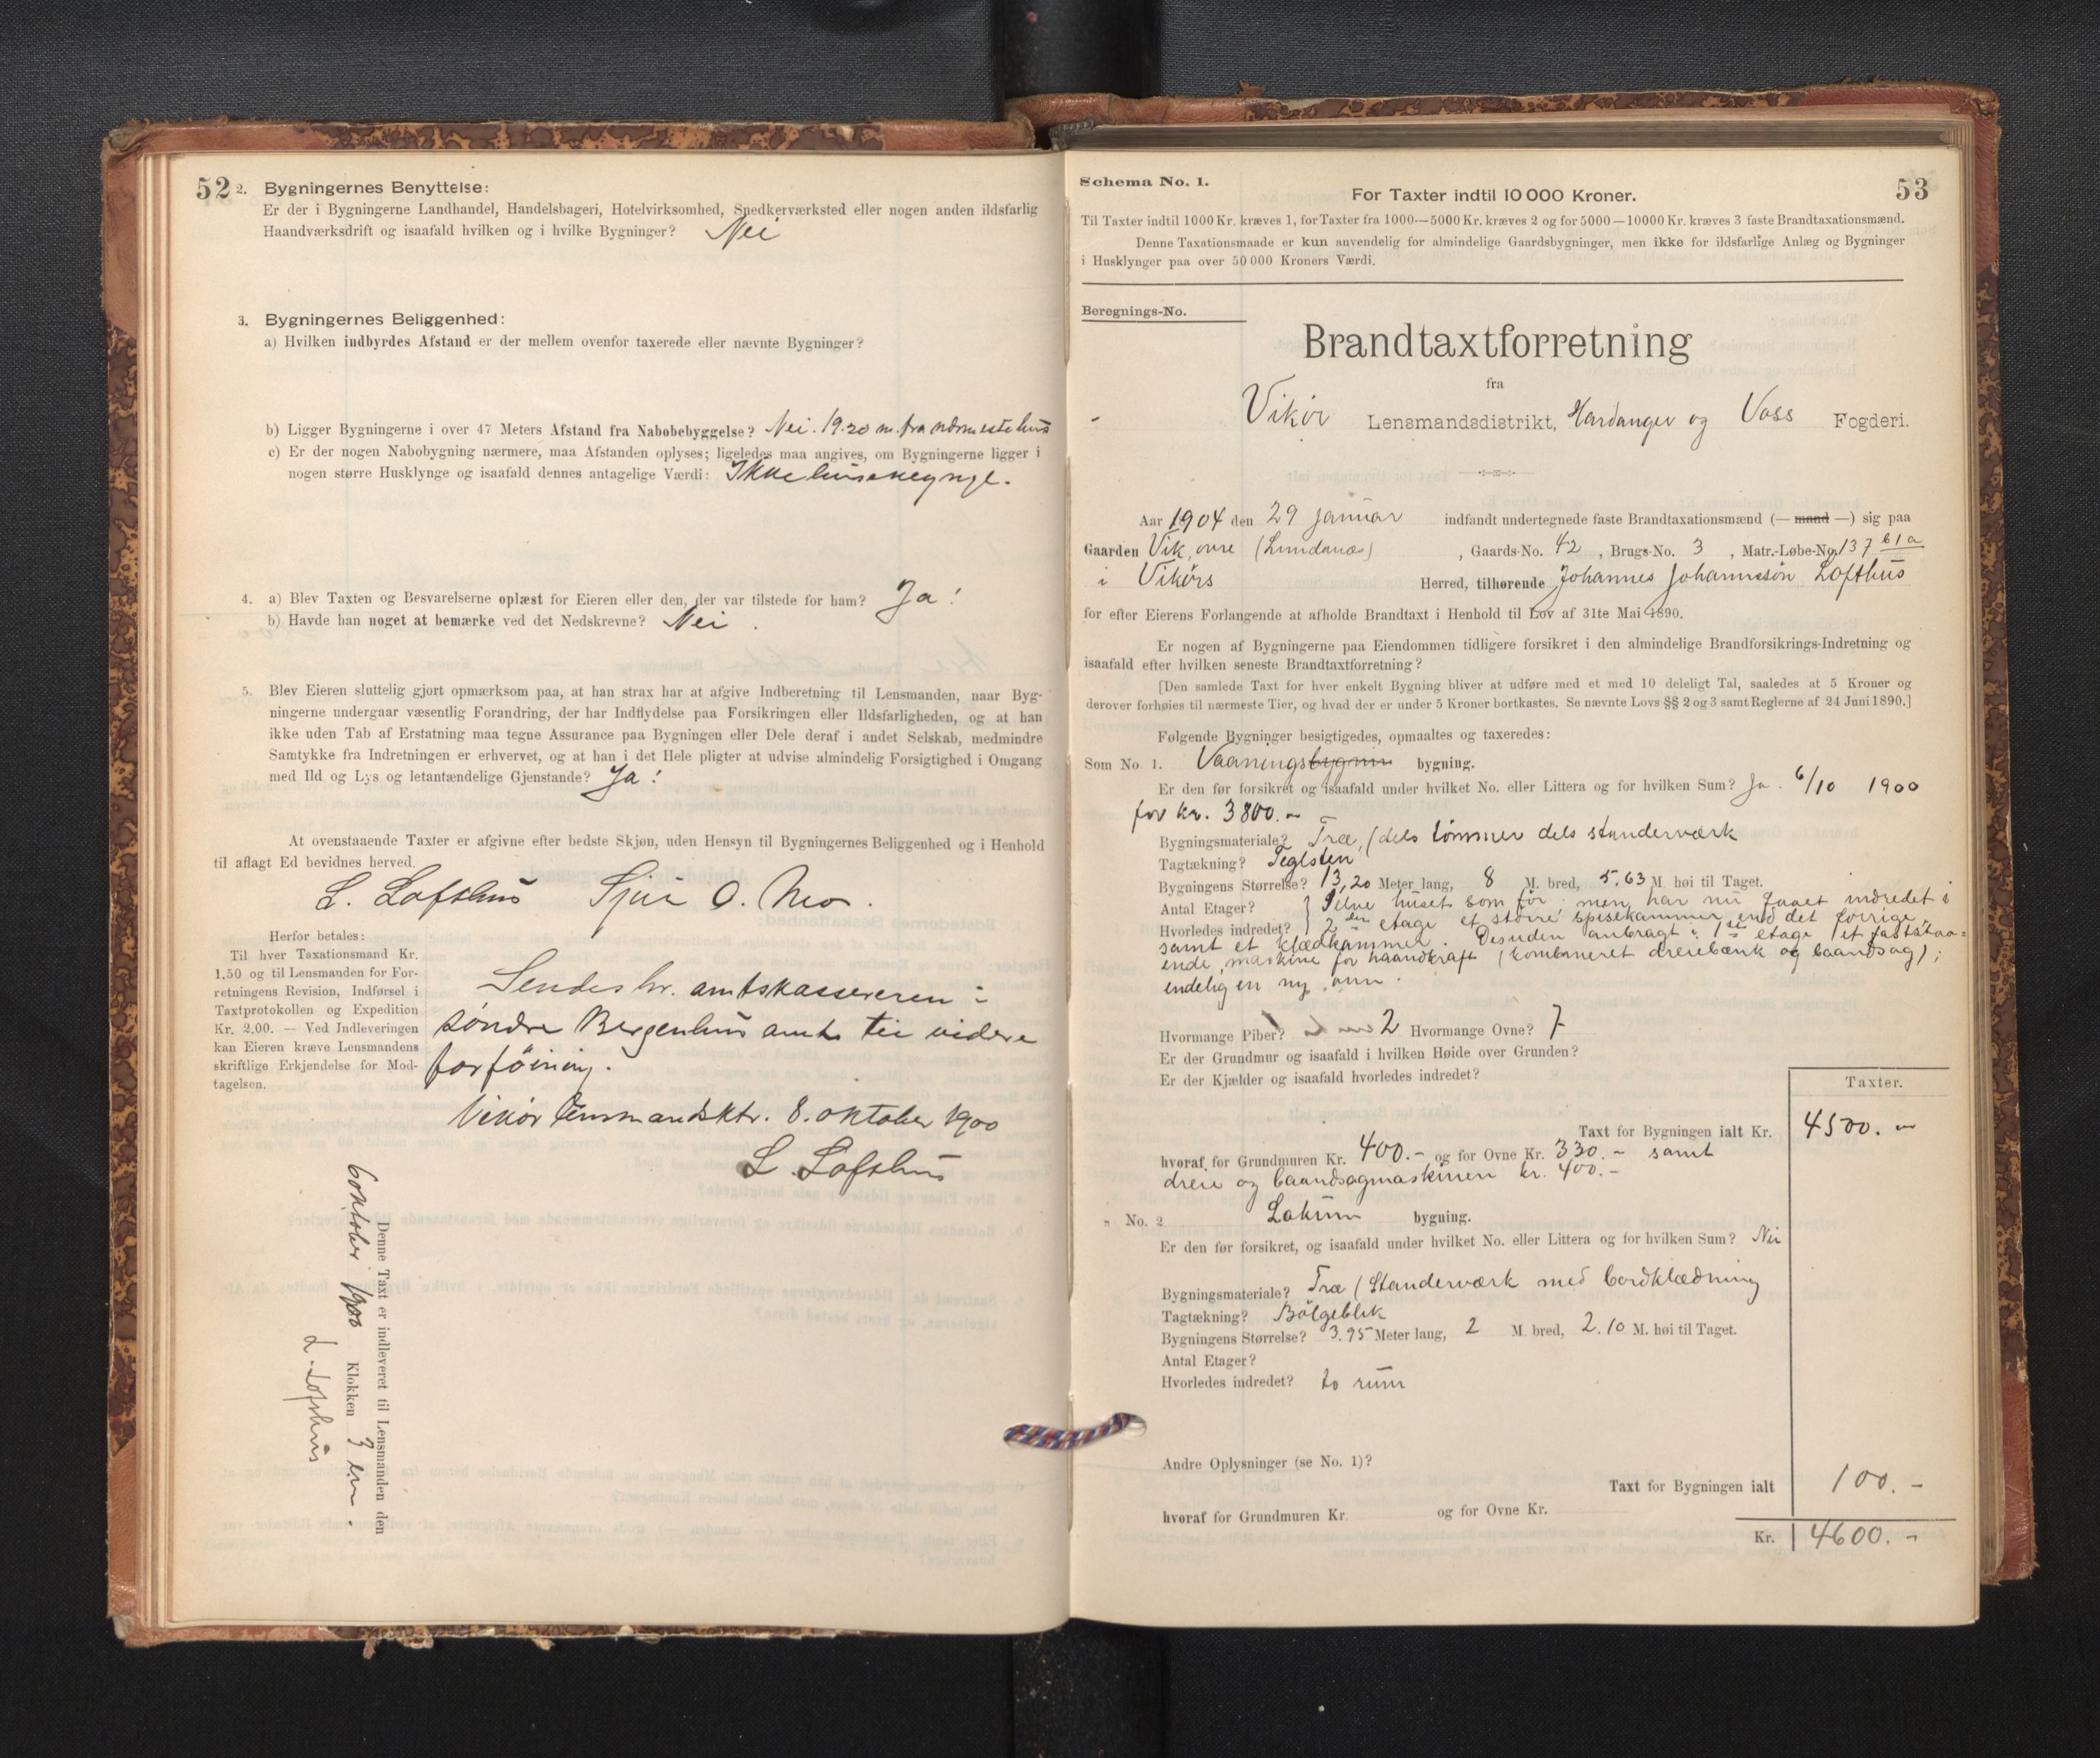 52
2. Bygningernes Benyttelse:
Er der i Bygningerne Landhandel, Handelsbageri, Hotelvirksomhed, Snedkerværksted eller nogen anden ildsfarlig
Haandværksdrift og isaafald hvilken og i hvilke Bygninger? Nei
3. Bygningernes Beliggenhed:
a) Hvilken indbyrdes Afstand er der mellem ovenfor taxerede eller nævnte Bygninger?
b) Ligger Bygningerne i over 47 Meters Afstand fra Nabobebyggelse? Nei. 19.20 m. fra nærmeste hus
c) Er der nogen Nabobygning nærmere, maa Afstanden oplyses; ligeledes maa angives, om Bygningerne ligger i
nogen større Husklynge og isaafald dennes antagelige Værdi: Ikke huseklynge.
4. a) Blev Taxten og Besvarelserne oplæst for Eieren eller den, der var tilstede for ham? Ja!
b) Havde han noget at bemærke ved det Nedskrevne? Nei.
5. Blev Eieren sluttelig gjort opmærksom paa, at han strax har at afgive Indberetning til Lensmanden, naar Byg-
ningerne undergaar væsentlig Forandring, der har Indflydelse paa Forsikringen eller Ildsfarligheden, og at han
ikke uden Tab af Erstatning maa tegne Assurance paa Bygningen eller Dele deraf i andet Selskab, medmindre
Samtykke fra Indretningen er erhvervet, og at han i det Hele pligter at udvise almindelig Forsigtighed i Omgang
med Ild og Lys og letantændelige Gjenstande? Ja!
At ovenstaaende Taxter er afgivne efter bedste Skjøn, uden Hensyn til Bygningernes Beliggenhed og i Henhold
til aflagt Ed bevidnes herved.
L. Lofthus Sjur O. Mo.
Herfor betales:
Til hver Taxationsmand Kr.
1,50 og til Lensmanden for For-
retningens Revision, Indførsel i
Taxtprotokollen og Expedition
Kr. 2,00. — Ved Indleveringen
kan Eieren kræve Lensmandens
skriftlige Erkjendelse for Mod-
tagelsen.
Sendes hr. amtskassereren i
søndre Bergenhus amt til videre
forføining.
Vikør lensmandsktr. 8. oktober 1900
L. Lofthus
Denne Taxt er indleveret til Lensmanden den
6 oktober 1900 Klokken 3 em.
L. Lofthus
53
Schema No. 1.
For Taxter indtil 10 000 Kroner.
Til Taxter indtil 1000 Kr. kræves 1, for Taxter fra 1000—5000 Kr. kræves 2 og for 5000—10000 Kr. kræves 3 faste Brandtaxationsmænd.
Denne Taxationsmaade er kun anvendelig for almindelige Gaardsbygninger, men ikke for ildsfarlige Anlæg og Bygninger
i Husklynger paa over 50 000 Kroners Værdi.
Beregnings-No.
Brandtaxtforretning
fra
Vikør Lensmandsdistrikt, Hardanger og Voss Fogderi.
Aar 1904 den 29 januar indfandt undertegnede faste Brandtaxationsmænd (— mand —) sig paa
Gaarden Vik, øvre (Lundanæs), Gaards-No. 42, Brugs-No. 3, Matr.-Løbe-No. 137 61a
i Vikørs Herred, tilhørende Johannes Johannesøn Lofthus
for efter Eierens Forlangende at afholde Brandtaxt i Henhold til Lov af 31te Mai 1890.
Er nogen af Bygningerne paa Eiendommen tidligere forsikret i den almindelige Brandforsikrings-Indretning og
isaafald efter hvilken seneste Brandtaxtforretning?
[Den samlede Taxt for hver enkelt Bygning bliver at udføre med et med 10 deleligt Tal, saaledes at 5 Kroner og
derover forhøies til nærmeste Tier, og hvad der er under 5 Kroner bortkastes. Se nævnte Lovs §§ 2 og 3 samt Reglerne af 24 Juni 1890.]
Følgende Bygninger besigtigedes, opmaaltes og taxeredes:
Som No. 1. Vaaningsbygnin bygning.
Er den før forsikret og isaafald under hvilket No. eller Littera og for hvilken Sum? Ja. 6/10 1900
for kr. 3800.
Bygningsmateriale? Træ, (dels tømmer dels standerværk
Tagtækning? Teglsten
Bygningens Størrelse? 13,20 Meter lang, 8 M. bred, 5.63 M. høi til Taget.
Antal Etager? Selve huset som før; men har nu faaet indredet i
Hvorledes indredet? 2den etage et større spisekammer end det forrige,
samt et klædkammer. Desuden anbragt i 1ste etage et faststaa=
ende maskine for haandkraft (kombineret dreiebænk og baandsag);
endelig en ny ovn.
Hvormange Piber? 2 Hvormange Ovne? 7
Er der Grundmur og isaafald i hvilken Høide over Grunden?
Er der Kjælder og isaafald hvorledes indredet?
Taxter.
Taxt for Bygningen ialt Kr. 4500.
hvoraf for Grundmuren Kr. 400.- og for Ovne Kr. 330.- samt
dreie og baandsagmaskinen kr. 400.-
" No. 2 Lokum bygning.
Er den før forsikret, og isaafald under hvilket No. eller Littera og for hvilken Sum? Nei
Bygningsmateriale? Træ (Standerværk med bordklædning
Tagtækning? Bølgeblik
Bygningens Størrelse? 3.95 Meter lang, 2 M. bred, 2.10 M. høi til Taget.
Antal Etager?
Hvorledes indredet? to rum
Andre Oplysninger (se No. 1)?
Taxt for Bygningen ialt 100.-
hvoraf for Grundmuren Kr. og for Ovne Kr.
Kr. 4600.-